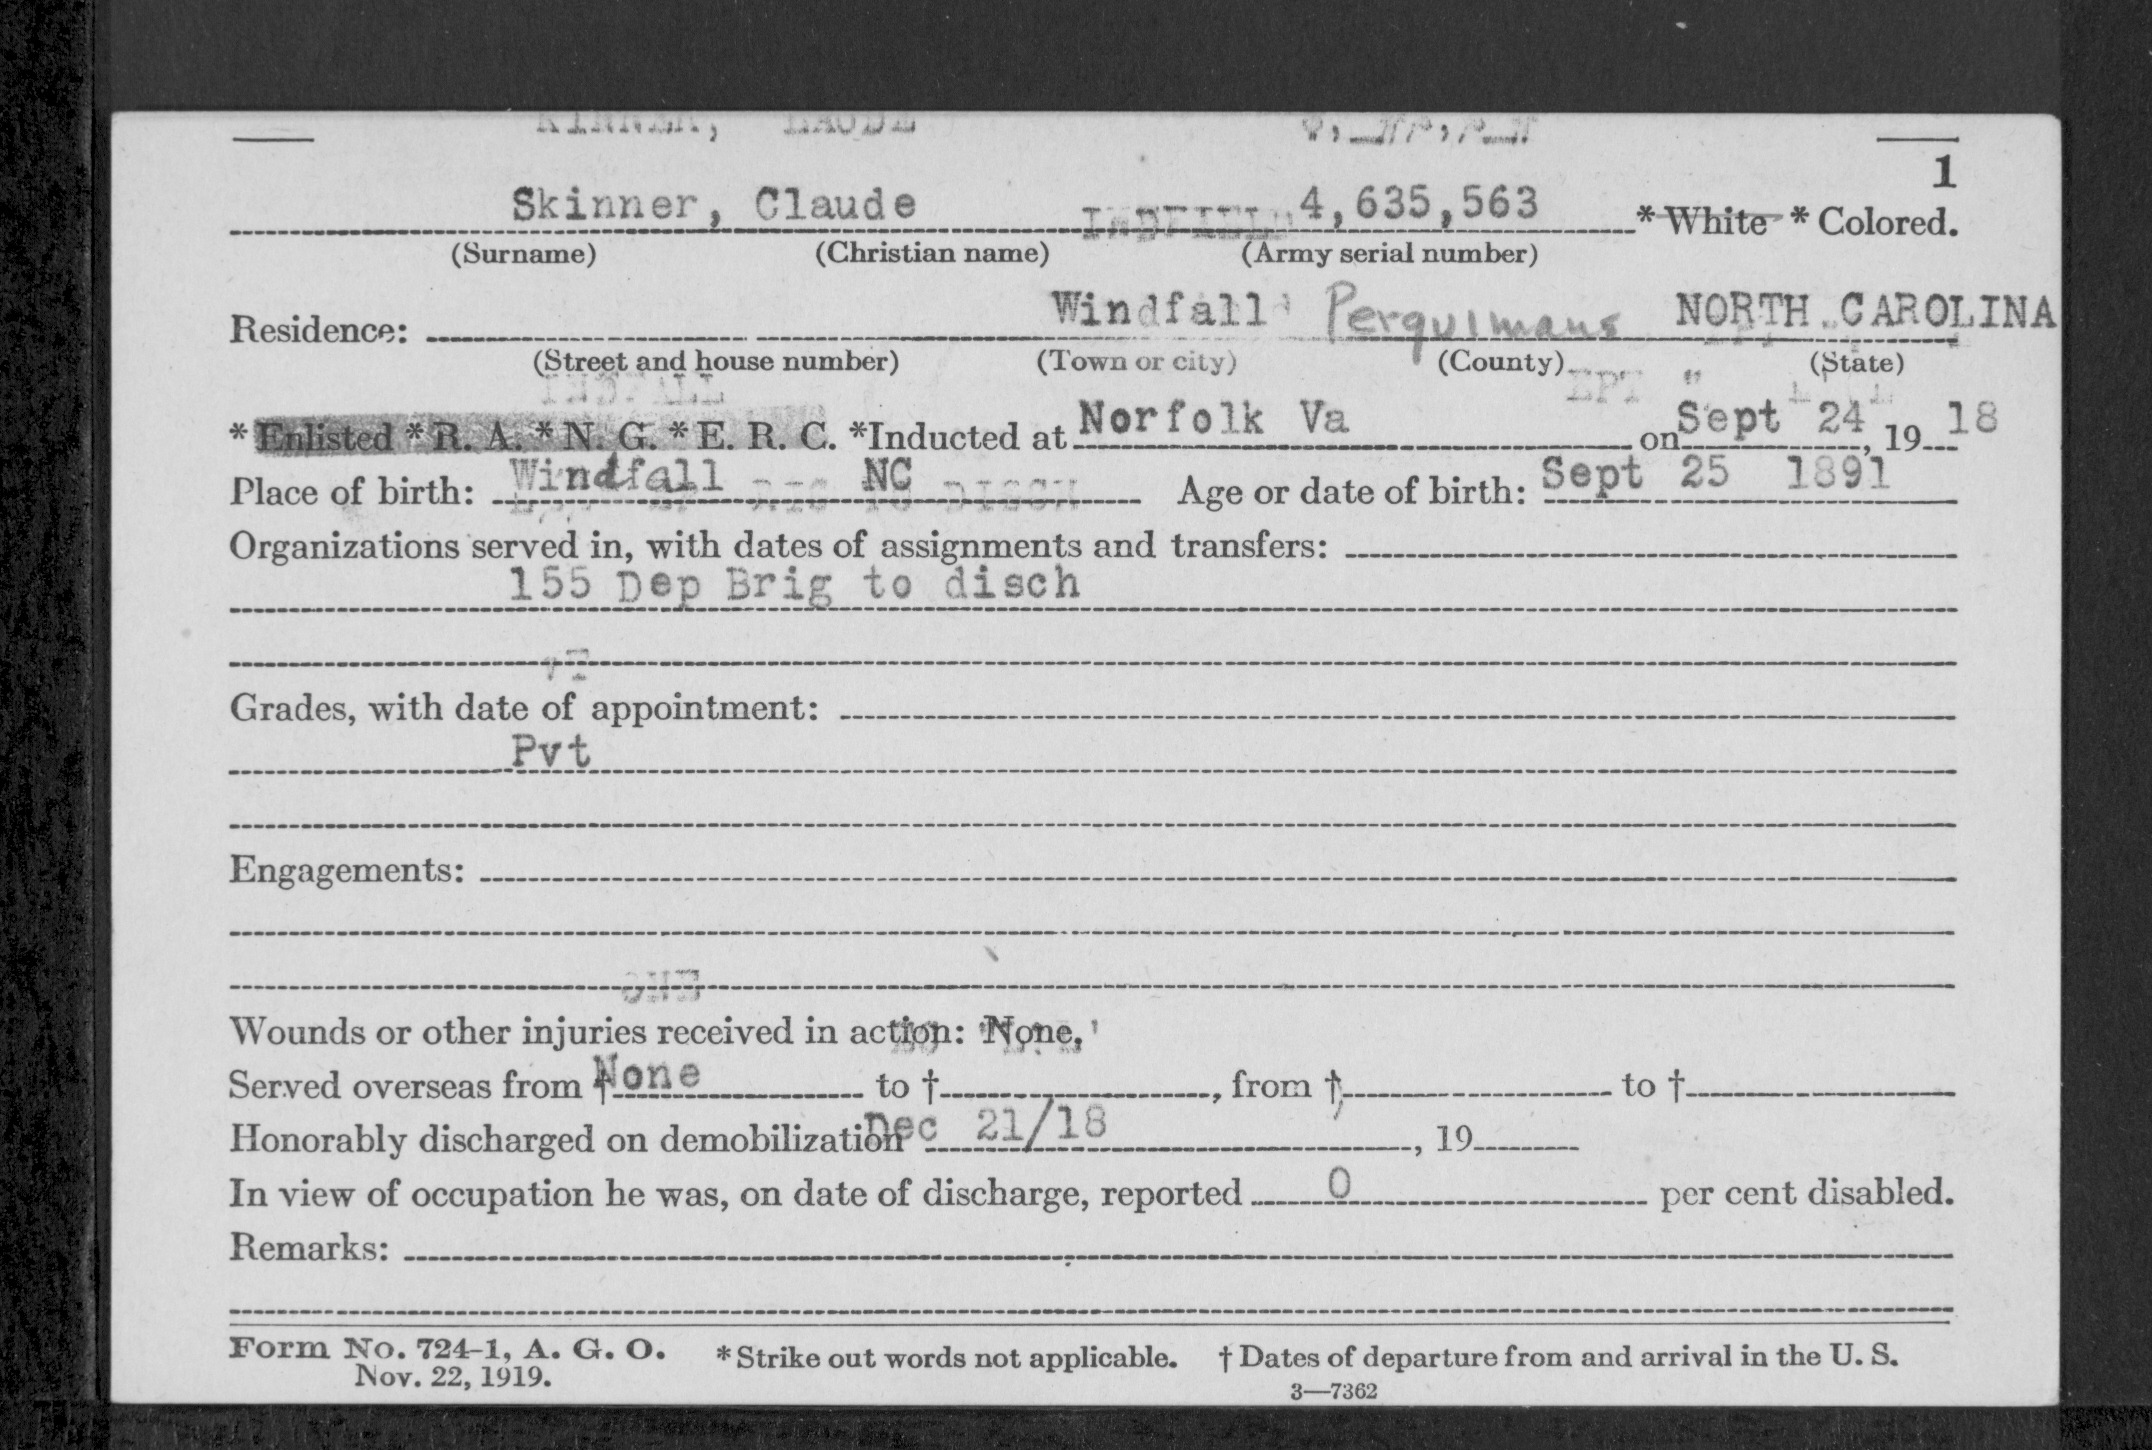 1
Skinner, Claude 4,635,563 * White * Colored.
(Surname) (Christian name) (Army serial number)
Residence: Windfall Perquimans NORTH CAROLINA
(Street and house number) (Town or city) (County) (State)
* Enlisted * R. A. * N. G. * E. R. C. *Inducted at Norfolk Va on Sept 24, 1918
Place of birth: Windfall NC Age or date of birth: Sept 25 1891
Organizations served in, with dates of assignments and transfers:
155 Dep Brig to disch
Grades, with date of appointment:
Pvt
Engagements:
Wounds or other injuries received in action: None.
Served overseas from † None to † , from † to †
Honorably discharged on demobilization Dec 21/18 , 19
In view of occupation he was, on date of discharge, reported 0 per cent disabled.
Remarks:
Form No. 724-1, A. G. O. * Strike out words not applicable. † Dates of departure from and arrival in the U. S.
Nov. 22, 1919.
3—7362